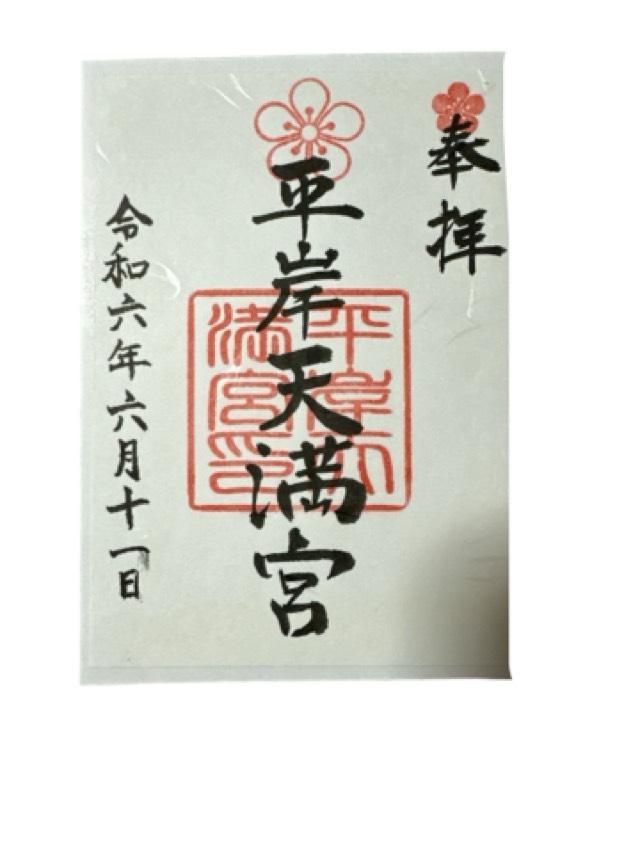 奉拝
平岸天満宮
平岸天
満宮印
令和六年六月十一日